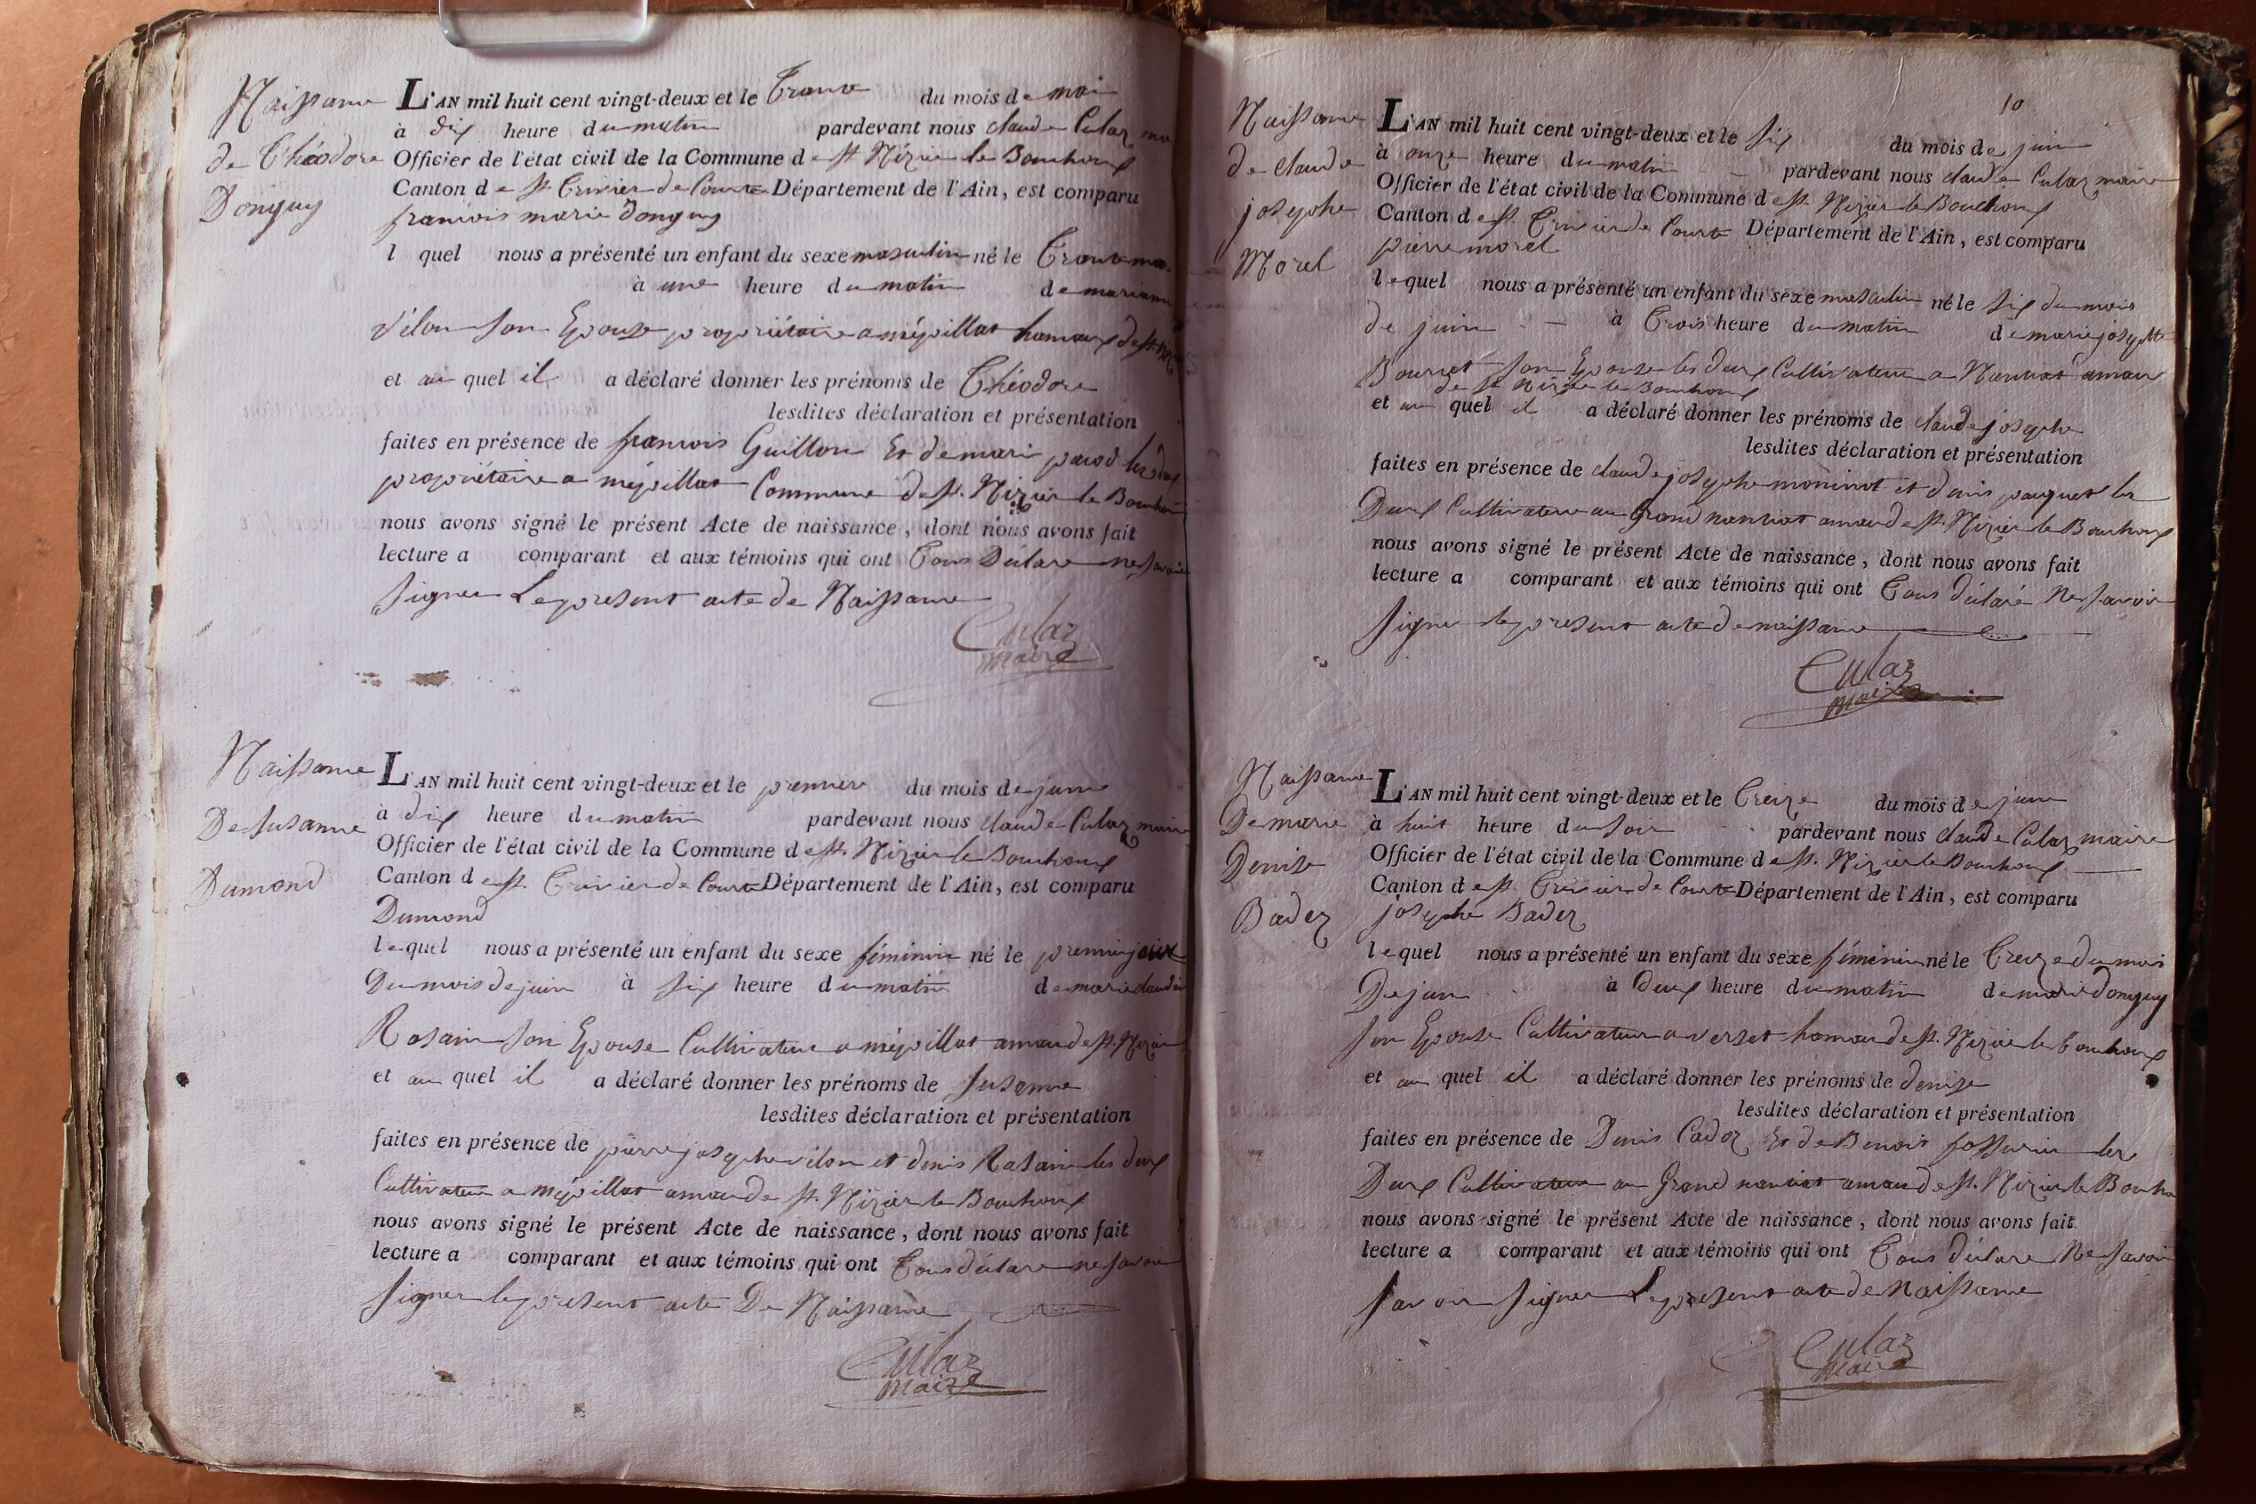 Naissance
de Théodore
Donguy
L'AN mil huit cent vingt-deux et le Trente du mois de mai
à dix heure du matin pardevant nous claude Culaz
Officier de l'état civil de la Commune de St. Nizier le Bouchoux
Canton de St. Trivier de Courte Département de l'Ain, est comparu
francois marie donguy
l quel nous a présenté un enfant du sexe masculin né le Trente
à une heure du matin de marianne
vélon Son Epouse propriétaire a mépillat hamaux de St
et au quel il a déclaré donner les prénoms de Théodore
lesdites déclaration et présentation
faites en présence de francois Guillon Et de mari
propriétaire a mépillat Commune de St. Nizier le Bouchoux
nous avons signé le présent Acte de naissance, dont nous avons fait
lecture a comparant et aux témoins qui ont Tous Déclare ne Savoir
Signer Le present acte de Naissance
Culaz
maire
Naissance
De Susanne
Dumond
L'AN mil huit cent vingt-deux et le premier du mois de juin
à dix heure du matin pardevant nous claude Culaz maire
Officier de l'état civil de la Commune de St. Nizier le Bouchoux
Canton de St. Trivier de Courte Département de l'Ain, est comparu
Dumond
lequel nous a présenté un enfant du sexe féminin né le premier jour
Du mois de juin à Six heure du matin de marie claudine
Rosain Son Epouse Cultivateur a mépillat amau de St. Nizier
et au quel il a déclaré donner les prénoms de Susanne
lesdites déclaration et présentation
faites en présence de pierre josephe vélon et denis Rasain les deux
Cultivateur a mépillat amau de St. Nizier le Bouchoux
nous avons signé le présent Acte de naissance, dont nous avons fait
lecture a comparant et aux témoins qui ont Tous déclare ne Savoir
Signer le present acte De Naissance
Culaz
maire
10
Naissance
de claude
josephe
Morel
L'AN mil huit cent vingt-deux et le Six du mois de juin
à onze heure du matin pardevant nous claude Culaz maire
Officier de l'état civil de la Commune de St. Nizier le Bouchoux
Canton de St. Trivier de Courte Département de l'Ain, est comparu
pierre morel
lequel nous a présenté un enfant du sexe masculin né le Six du mois
de juin à Trois heure du matin de marie josephte
Bourret Son Epouse les deux Cultivateur a Nantuat amau
de St. Nizier le Bouchoux
et au quel il a déclaré donner les prénoms de claude josephe
lesdites déclaration et présentation
faites en présence de claude josephe moninot et denis pauquet les
Deux Cultivateur au Grand nantuat amau de St. Nizier le Bouchoux
nous avons signé le présent Acte de naissance, dont nous avons fait
lecture a comparant et aux témoins qui ont Tous déclaré Ne Savoir
Signer le present acte de naissance
Culaz
maire
Naissance
De marie
Denise
Badez
L'AN mil huit cent vingt-deux et le Treize du mois de juin
à huit heure du Soir pardevant nous claude Culaz maire
Officier de l'état civil de la Commune de St. Nizier le Bouchoux
Canton de St. Trivier de Courte Département de l'Ain, est comparu
josephe Badez
lequel nous a présenté un enfant du sexe féminin né le Treize du mois
De juin à deux heure du matin de marie donguy
Son Epouse Cultivateur a verset hamau de St. Nizier le bouchoux
et au quel il a déclaré donner les prénoms de denise
lesdites déclaration et présentation
faites en présence de Denis Cadoz Et de Benois les
Deux Cultivateur au Grand nantuat amau de St. Nizier le Bouchoux
nous avons signé le présent Acte de naissance, dont nous avons fait
lecture a comparant et aux témoins qui ont Tous déclare Ne Savoir
Savoir Signer Le present acte de Naissance
Culaz
maire